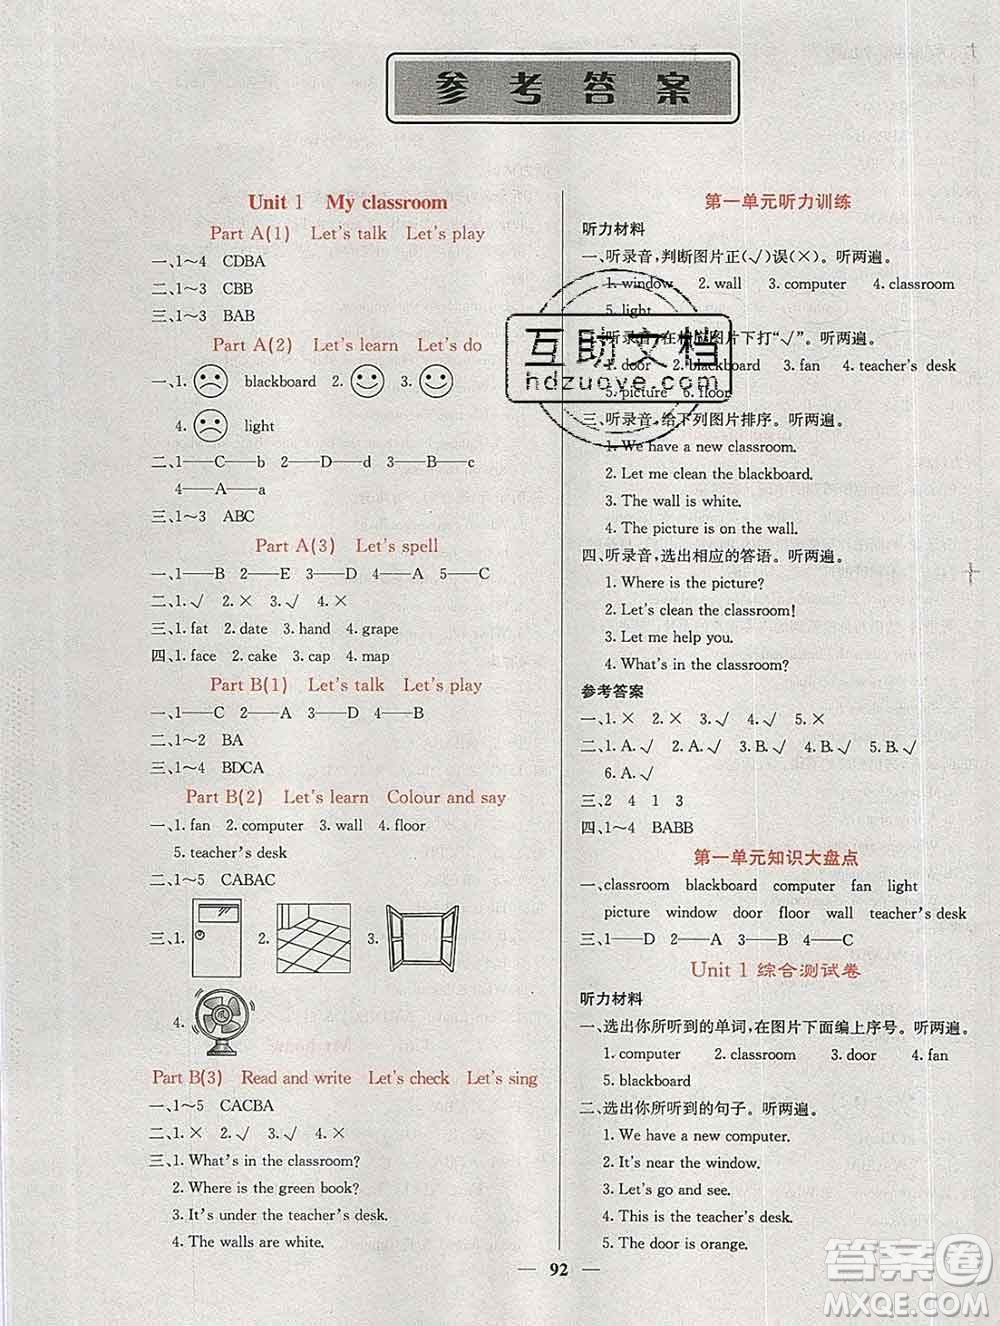 参考答案
Unit 1 My classroom
Part A(1) Let's talk Let's play
一、1～4 CDBA
二、1～3 CBB
三、1～3 BAB
Part A(2) Let's learn Let's do
一、1. blackboard 2. 3.
4. light
二、1——C——b 2——D——d 3——B——c
4——A——a
三、1～3 ABC
Part A(3) Let's spell
一、1——B 2——E 3——D 4——A 5——C
二、1.√ 2.× 3.√ 4.×
三、1. fat 2. date 3. hand 4. grape
四、1. face 2. cake 3. cap 4. map
Part B(1) Let's talk Let's play
一、1——C 2——A 3——D 4——B
二、1～2 BA
三、1～4 BDCA
Part B(2) Let's learn Colour and say
一、1. fan 2. computer 3. wall 4. floor
5. teacher's desk
二、1～5 CABAC
三、1. 2. 3.
4.
Part B(3) Read and write Let's check Let's sing
一、1～5 CACBA
二、1.× 2.√ 3.√ 4.×
三、1. What's in the classroom?
2. Where is the green book?
3. It's under the teacher's desk.
4. The walls are white.
第一单元听力训练
听力材料
一、听录音,判断图片正(√)误(×)。听两遍。
1. window 2. wall 3. computer 4. classroom
5. light
二、听录音,在相应图片下打“√”。听两遍。
1. door 2. blackboard 3. fan 4. teacher's desk
5. picture 6. floor
三、听录音,给下列图片排序。听两遍。
1. We have a new classroom.
2. Let me clean the blackboard.
3. The wall is white.
4. The picture is on the wall.
四、听录音,选出相应的答语。听两遍。
1. Where is the picture?
2. Let's clean the classroom!
3. Let me help you.
4. What's in the classroom?
参考答案
一、1.× 2.× 3.√ 4.√ 5.×
二、1. A.√ 2. A.√ 3. B.√ 4. B.√ 5. B.√
6. A.√
三、2 4 1 3
四、1～4 BABB
第一单元知识大盘点
一、classroom blackboard computer fan light
picture window door floor wall teacher's desk
三、1——D 2——A 3——B 4——C
Unit 1 综合测试卷
听力材料
一、选出你所听到的单词,在图片下面编上序号。听两遍。
1. computer 2. classroom 3. door 4. fan
5. blackboard
二、选出你所听到的句子。听两遍。
1. We have a new computer.
2. It's near the window.
3. Let's go and see.
4. This is the teacher's desk.
5. The door is orange.
92
互助文档
hdzuoye.com
答案圈
MXQE.COM